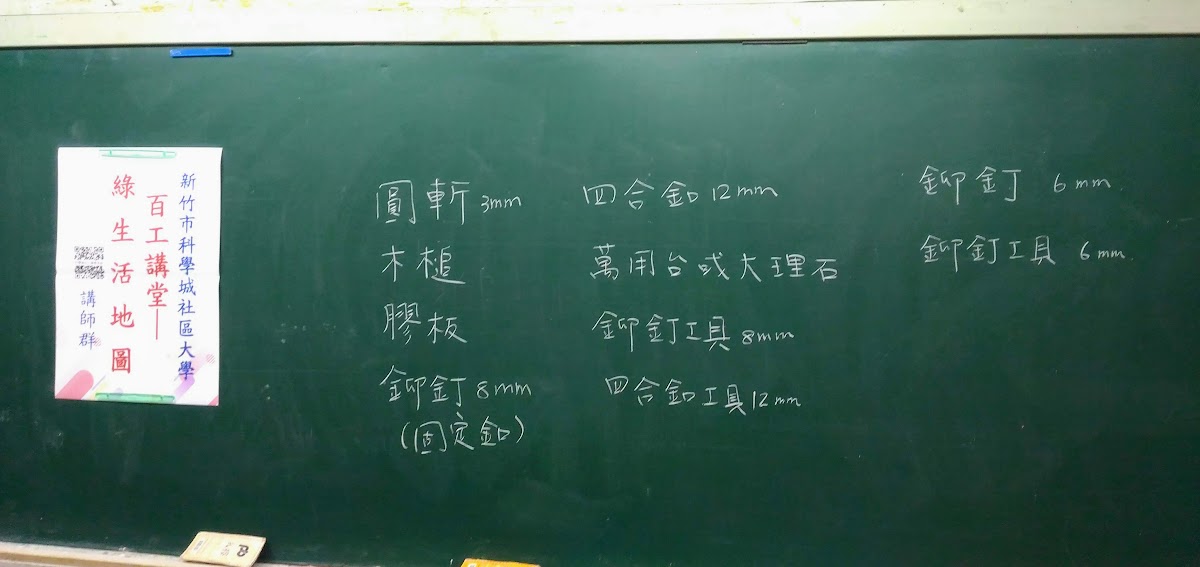 新竹市科學城社區大學
百工講堂—
綠生活地圖
講師群
圓斬 3mm
木槌
膠板
鉚釘 8mm
(固定釦)
四合釦 12mm
萬用台或大理石
鉚釘工具 8mm
四合釦工具 12mm
鉚釘 6mm
鉚釘工具 6mm